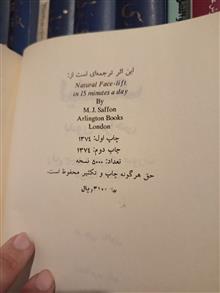 این اثر ترجمه‌ای است از:
Natural Face-lift
in 15 minutes a day
By
M.J. Saffon
Arlington Books
London
چاپ اول: ۱۳۷۴
چاپ دوم: ۱۳۷۴
تعداد: ۵۰۰۰ نسخه
حق هرگونه چاپ و تکثیر محفوظ است.
بها: ۳۱۰۰ ریال